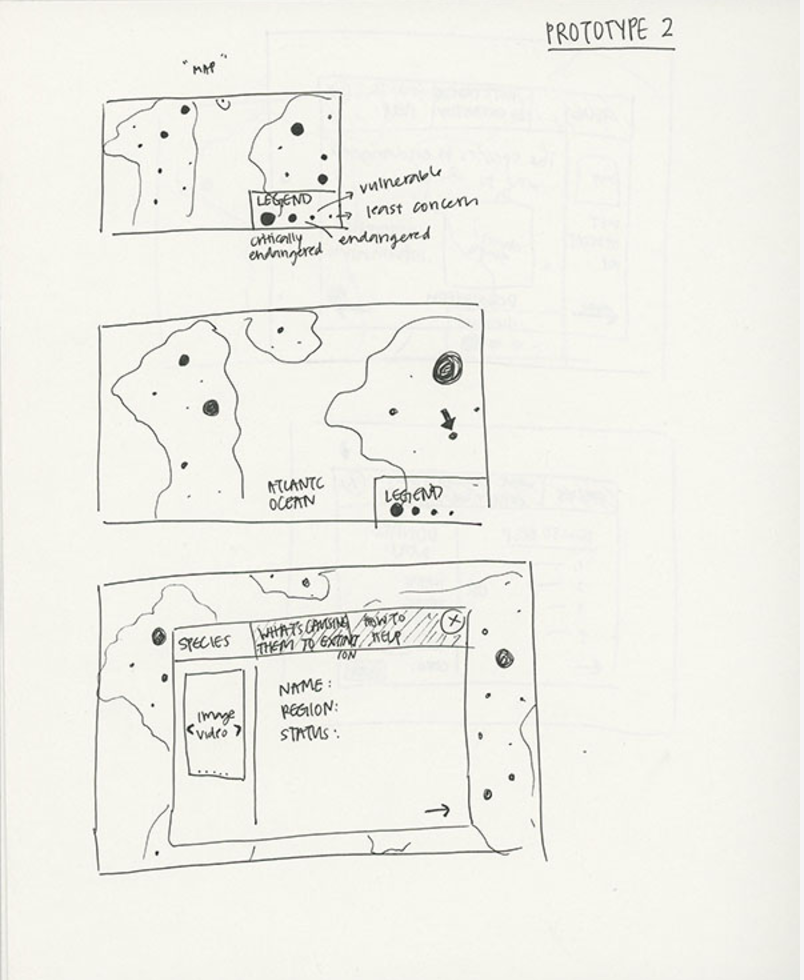 PROTOTYPE 2
"MAP"
LEGEND
vulnerable
least concern
critically
endangered
endangered
ATLANTC
OCEAN
LEGEND
SPECIES
WHAT'S CAUSING
THEM TO EXTINCT
ION
HOW TO
HELP
X
Image
< video >
NAME :
REGION:
STATUS :